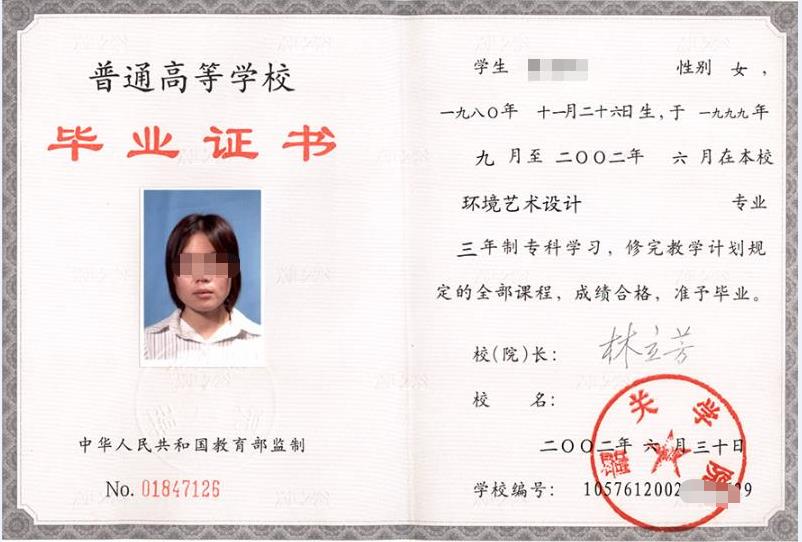 普通高等学校
毕业证书
中华人民共和国教育部监制
No. 01847126
学生 性别 女，
一九八〇年 十一月二十六日生，于 一九九九年
九 月至 二〇〇二年 六 月在本校
环境艺术设计 专业
三 年制专科学习，修完教学计划规
定的全部课程，成绩合格，准予毕业。
校(院)长： 林立芳
校 名：
韶关学院
二〇〇二年 六 月三十日
学校编号： 1057612002